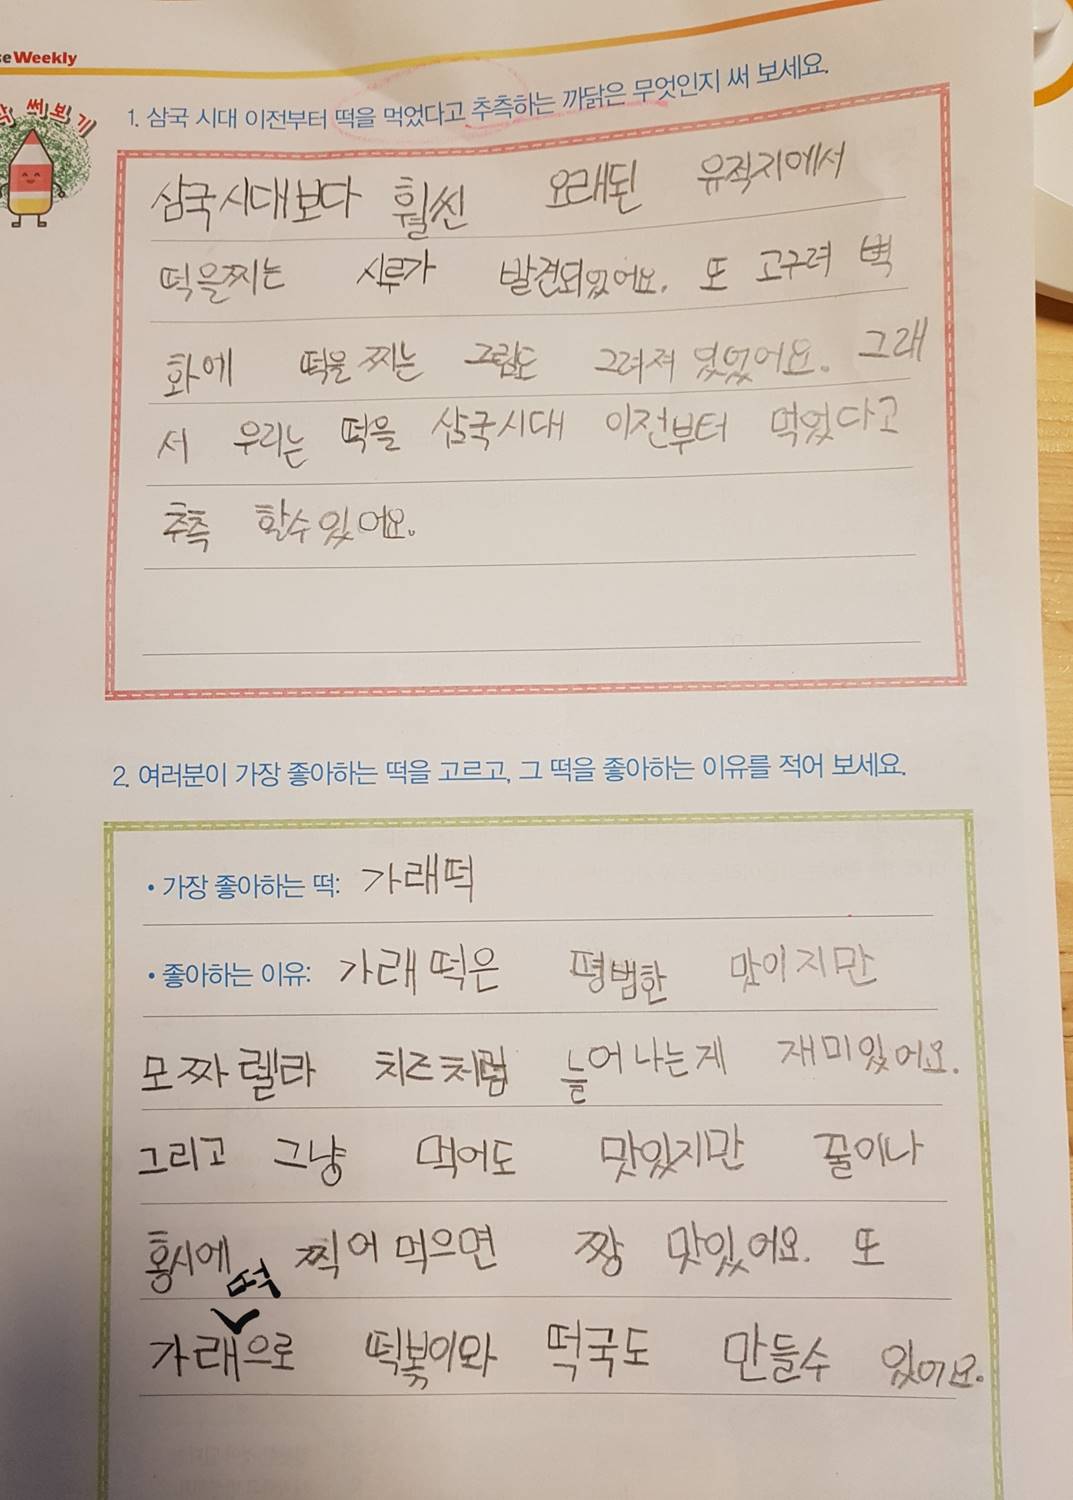 eWeekly
싹 써보기
1. 삼국 시대 이전부터 떡을 먹었다고 추측하는 까닭은 무엇인지 써 보세요.
삼국시대보다 훨씬 오래된 유적지에서
떡을찌는 시루가 발견되있어요. 또 고구려 벽
화에 떡을 찌는 그림도 그려져 있었어요. 그래
서 우리는 떡을 삼국시대 이전부터 먹었다고
추측 할수있어요.
2. 여러분이 가장 좋아하는 떡을 고르고, 그 떡을 좋아하는 이유를 적어 보세요.
• 가장 좋아하는 떡: 가래떡
• 좋아하는 이유: 가래떡은 평범한 맛이지만
모짜렐라 치즈처럼 늘어나는게 재미있어요.
그리고 그냥 먹어도 맛있지만 꿀이나
홍시에 찍어먹으면 짱 맛있어요. 또
가래떡으로 떡볶이와 떡국도 만들수 있어요.